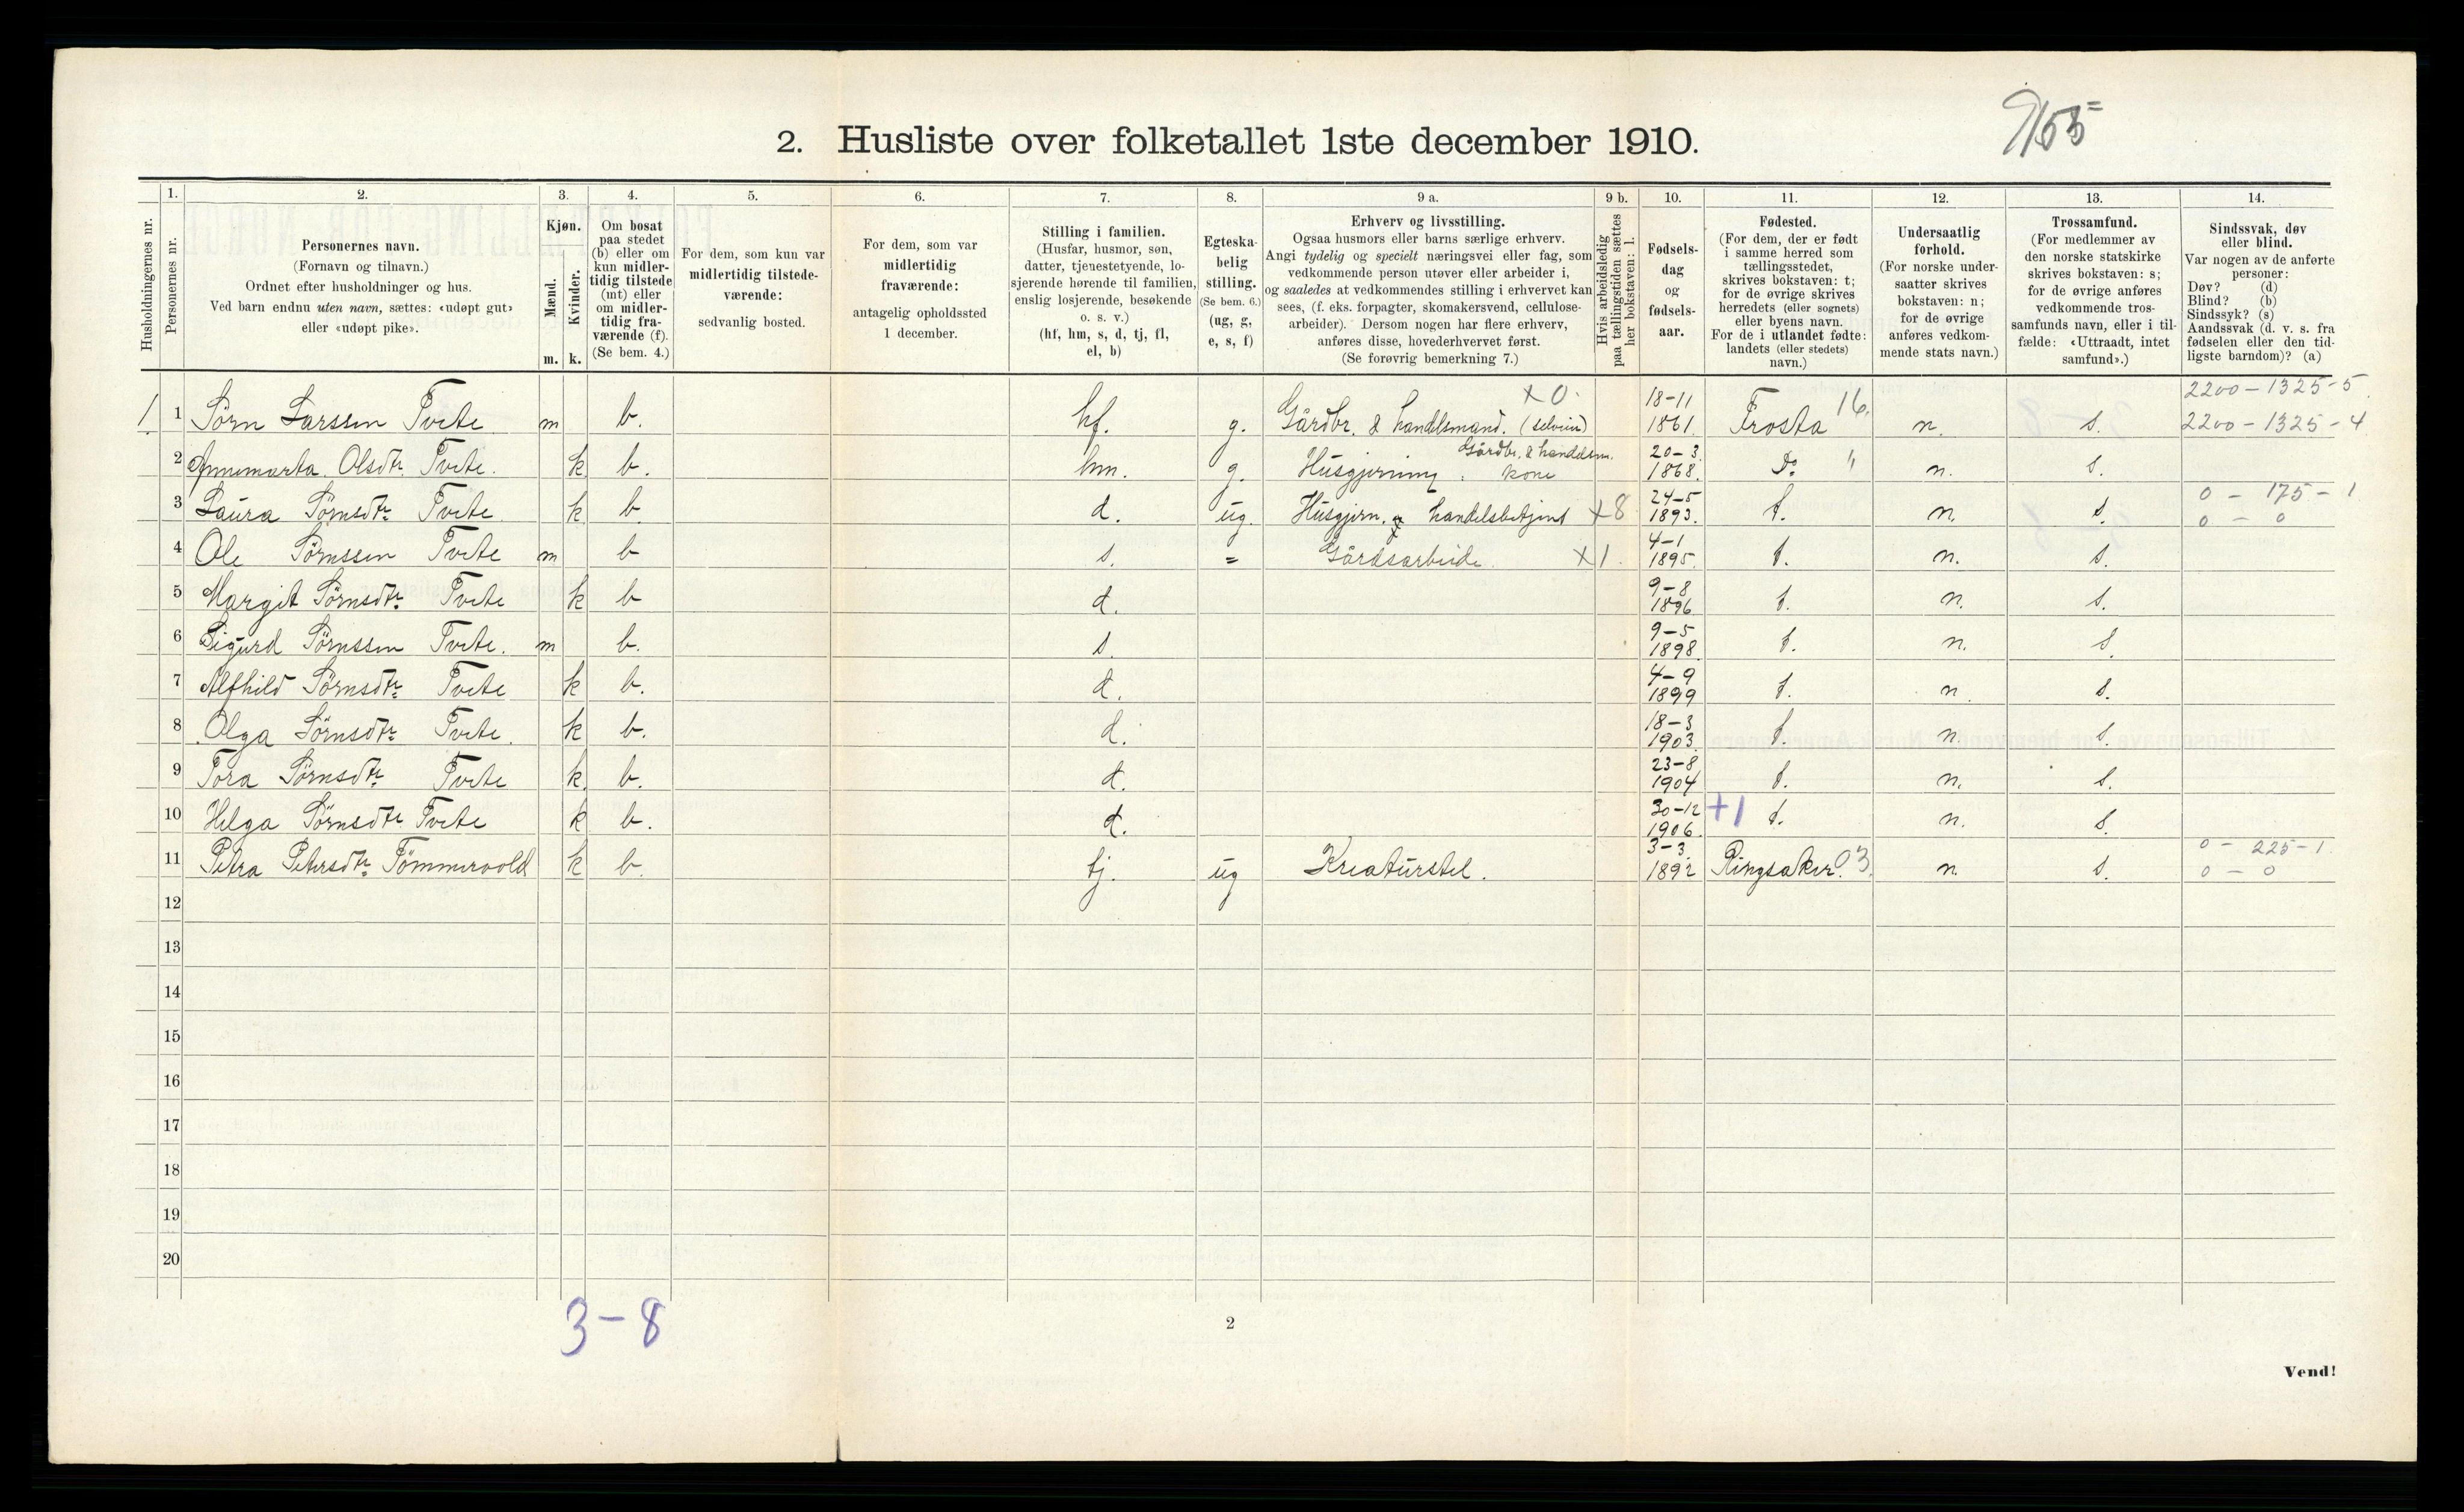 2. Husliste over folketallet 1ste december 1910.
Husholdningernes nr.
1. Personernes nr.
2. Personernes navn.
(Fornavn og tilnavn.)
Ordnet efter husholdninger og hus.
Ved barn endnu uten navn, sættes: «udøpt gut»
eller «udøpt pike».
3. Kjøn.
Mænd. m.
Kvinder. k.
4. Om bosat
paa stedet
(b) eller om
kun midler-
tidig tilstede
(mt) eller
om midler-
tidig fra-
værende (f).
(Se bem. 4.)
5. For dem, som kun var
midlertidig tilstede-
værende:
sedvanlig bosted.
6. For dem, som var
midlertidig
fraværende:
antagelig opholdssted
1 december.
7. Stilling i familien.
(Husfar, husmor, søn,
datter, tjenestetyende, lo-
sjerende hørende til familien,
enslig losjerende, besøkende
o. s. v.)
(hf, hm, s, d, tj, fl,
el, b)
8. Egteska-
belig
stilling.
(Se bem. 6.)
(ug, g,
e, s, f)
9 a. Erhverv og livsstilling.
Ogsaa husmors eller barns særlige erhverv.
Angi tydelig og specielt næringsvei eller fag, som
vedkommende person utøver eller arbeider i,
og saaledes at vedkommendes stilling i erhvervet kan
sees, (f. eks. forpagter, skomakersvend, cellulose-
arbeider). Dersom nogen har flere erhverv,
anføres disse, hovederhvervet først.
(Se forøvrig bemerkning 7.)
9 b. Hvis arbeidsledig
paa tællingstiden sættes
her bokstaven: l.
10. Fødsels-
dag
og
fødsels-
aar.
11. Fødested.
(For dem, der er født
i samme herred som
tællingsstedet,
skrives bokstaven: t;
for de øvrige skrives
herredets (eller sognets)
eller byens navn.
For de i utlandet fødte:
landets (eller stedets)
navn.)
12. Undersaatlig
forhold.
(For norske under-
saatter skrives
bokstaven: n;
for de øvrige
anføres vedkom-
mende stats navn.)
13. Trossamfund.
(For medlemmer av
den norske statskirke
skrives bokstaven: s;
for de øvrige anføres
vedkommende tros-
samfunds navn, eller i til-
fælde: «Uttraadt, intet
samfund».)
14. Sindssvak, døv
eller blind.
Var nogen av de anførte
personer:
Døv? (d)
Blind? (b)
Sindssyk? (s)
Aandssvak (d. v. s. fra
fødselen eller den tid-
ligste barndom)? (a)
2200 - 1325 - 5
1 1 Sørn Larssen Tvete m b. hf. g. Gårdbr. & handelsmand. (selveier) x 0. 18-11 1861. Frosta 16. n. s. 2200 - 1325 - 4
2 Annemarta Olsdtr. Tvete. k b. hm. g. Husgjerning. Gårdbr. & handelsm. kone 20-3 1868. Do " n. s.
3 Laura Sørnsdtr. Tvete k b. d. ug. Husgjern. & handelsbetjent x8 24-5 1893. t. n. s. 0 - 175 - 1
0 - 0
4 Ole Sørnssen Tvete m b s. = Gårdsarbeide x1. 4-1 1895. t. n. s.
5 Margit Sørnsdtr. Tvete k b d. 9-8 1896 t. n. s.
6 Sigurd Sørnssen Tvete. m b. s. 9-5 1898. t. n. s.
7 Alfhild Sørnsdtr. Tvete k b. d. 4-9 1899 t. n. s.
8 Olga Sørnsdtr. Tvete. k b. d. 18-3 1903. t. n. s.
9 Tora Sørnsdtr. Tvete k. b. d. 23-8 1904 t. n. s.
10 Helga Sørnsdtr. Tvete k b. d. 30-12 1906. +1 t. n. s.
11 Petra Petersdtr. Tömmervold k b. tj. ug Kreaturstel. 3-3. 1892 Ringsaker. 03. n. s. 0 - 225 - 1.
0 - 0
12
13
14
15
16
17
18
19
20
3 - 8
2
Vend!